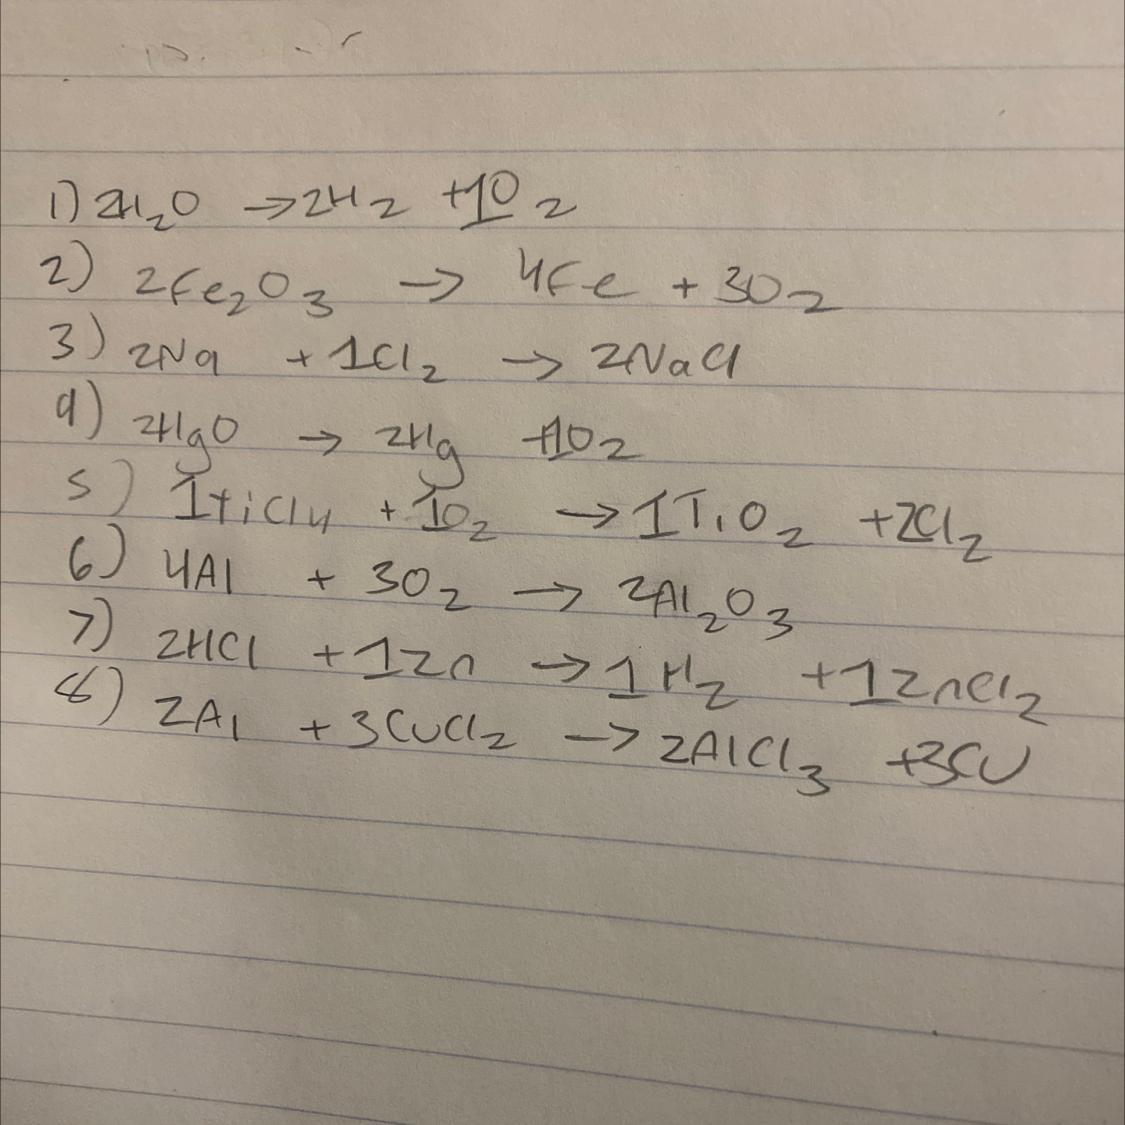 1) 2H₂O → 2H₂ + 1O₂
2) 2Fe₂O₃ → 4Fe + 3O₂
3) 2Na + 1Cl₂ → 2NaCl
4) 2HgO → 2Hg + 1O₂
5) 1TiCl₄ + 1O₂ → 1TiO₂ + 2Cl₂
6) 4Al + 3O₂ → 2Al₂O₃
7) 2HCl + 1Zn → 1H₂ + 1ZnCl₂
8) 2Al + 3CuCl₂ → 2AlCl₃ + 3Cu